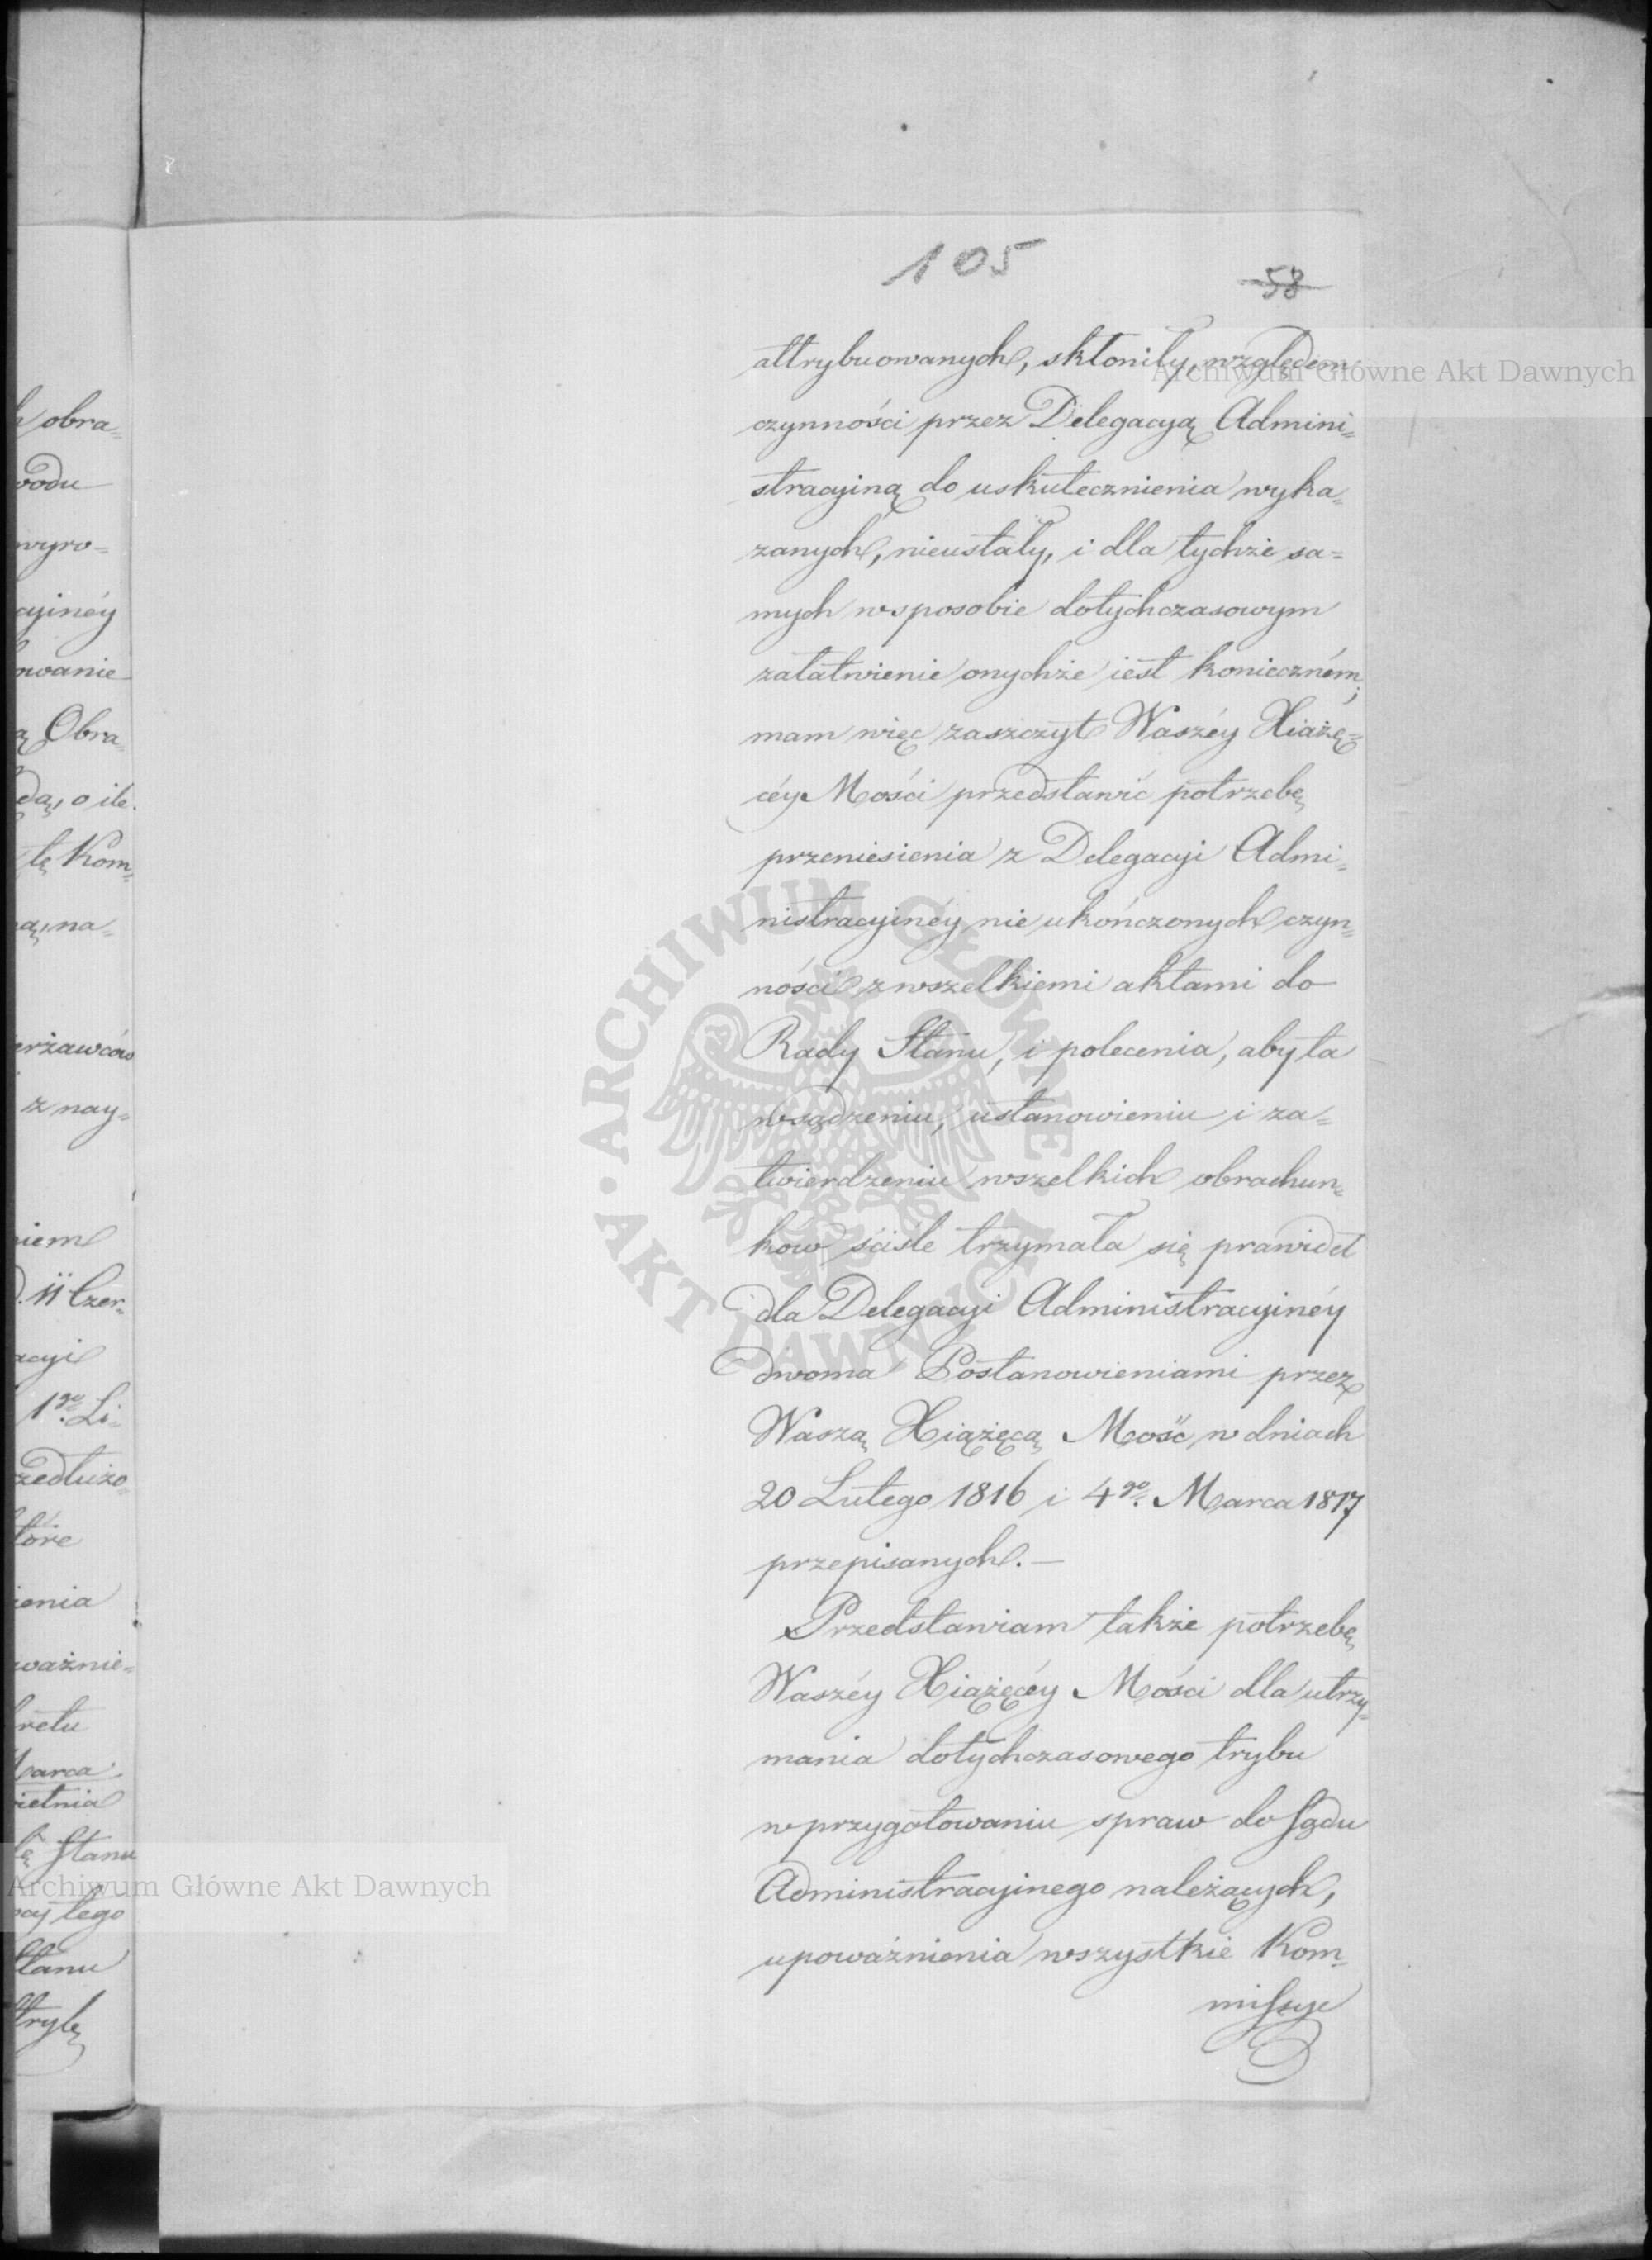 105
58
attrybuowanych, skłoniły, względem
czynności przez Delegacyą Admini=
stracyiną do uskutecznienia wyka=
zanych, nieustały, i dla tychże sa=
mych w sposobie dotychczasowym
załatwienie onychże iest konieczném;
mam więc zaszczyt Waszéy Xiążę=
céy Mości przedstawić potrzebę
przeniesienia z Delegacyi Admi=
nistracyinéy nie ukończonych czyn=
ności z wszelkiemi aktami do
Rady Stanu, i polecenia, aby ta
w sądzeniu, ustanowieniu i za=
twierdzeniu wszelkich obrachun=
ków ściśle trzymała się prawideł
dla Delegacyi Administracyinéy
dwoma Postanowieniami przez
Waszą Xiążęcą Mość w dniach
20 Lutego 1816 i 4go Marca 1817
przepisanych. —
Przedstawiam także potrzebę
Waszéy Xiążęcéy Mości dla utrzy=
mania dotychczasowego trybu
w przygotowaniu spraw do Sądu
Administracyinego należących,
upoważnienia wszystkie Kom=
missye
h obra=
wodu
wyro=
cyinéy
owanie
ą Obra=
dą, o ile
tę Kom=
ą, na=
erżawców
z nay=
niem
11 Czer=
acyi
1go Li=
zedłużo=
tóre
ienia
ważnie=
retu
Marca
wietnia
Stanu
tego
Stanu
ttrybę
Archiwum Główne Akt Dawnych
ARCHIWUM GŁÓWNE AKT DAWNYCH
Archiwum Główne Akt Dawnych